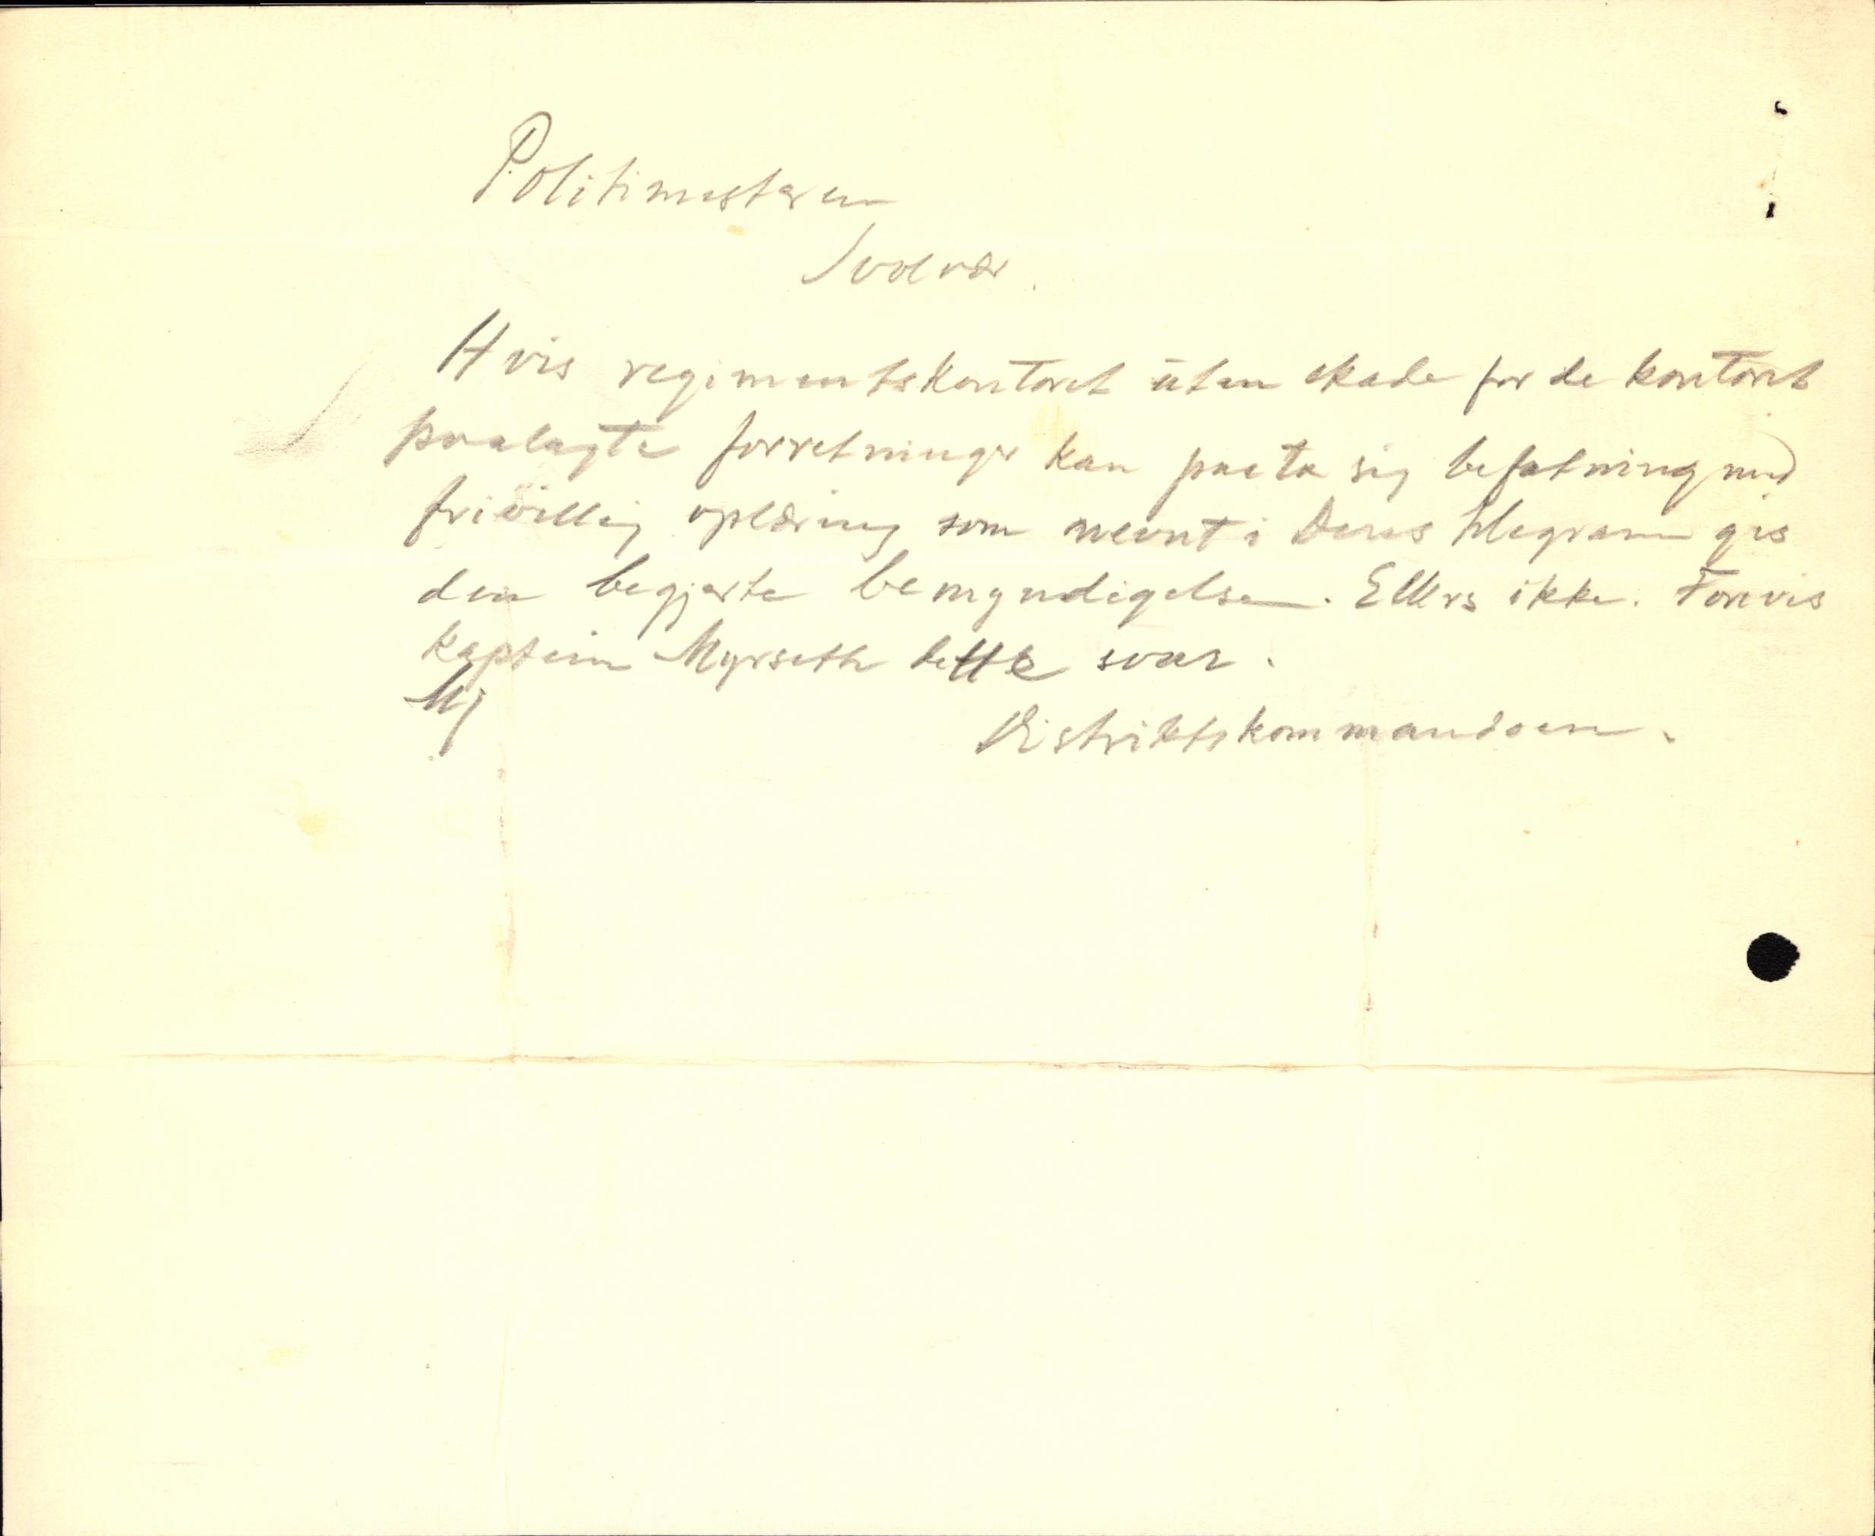 Politimesteren
Svolvær.
Hvis regimentskontoret uten skade for de kontoret
paalagte forretninger kan paata sig befatning med
frivillig oplæring som nevnt i Deres telegram gis
den begjærte bemyndigelse. Ellers ikke. Forevis
kaptein Myrseth dette svar.
Distriktskommandoen.